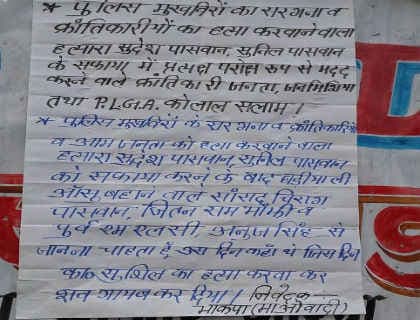 * पुलिस मुखबिरों का सरगना व
क्राँतिकारीयों का हत्या करवाने वाला
हत्यारा सुदेश पासवान, सुनिल पासवान
के सफाया में प्रत्यक्ष परोक्ष रूप से मदद
करने वाले क्रांतिकारी जनता, जनमिलिशिया
तथा P.L.G.A. को लाल सलाम।
* पुलिस मुखबिरों के सरगना व क्राँतिकारियों
व आम जनता को हत्या करवाने वाला
हत्यारा सुदेश पासवान, सुनिल पासवान
को सफाया करने के बाद घड़ीयाली
आँसू बहाने वाले सांसद चिराग
पासवान, जितन राम माँझी व
पूर्व एम एलसी अनुज सिंह से
जानना चाहता है, उस दिन कहाँ थे जिस दिन
का० सुशिल का हत्या करवा कर
शव गायब कर दिया। निवेदक
भाकपा (माओवादी)